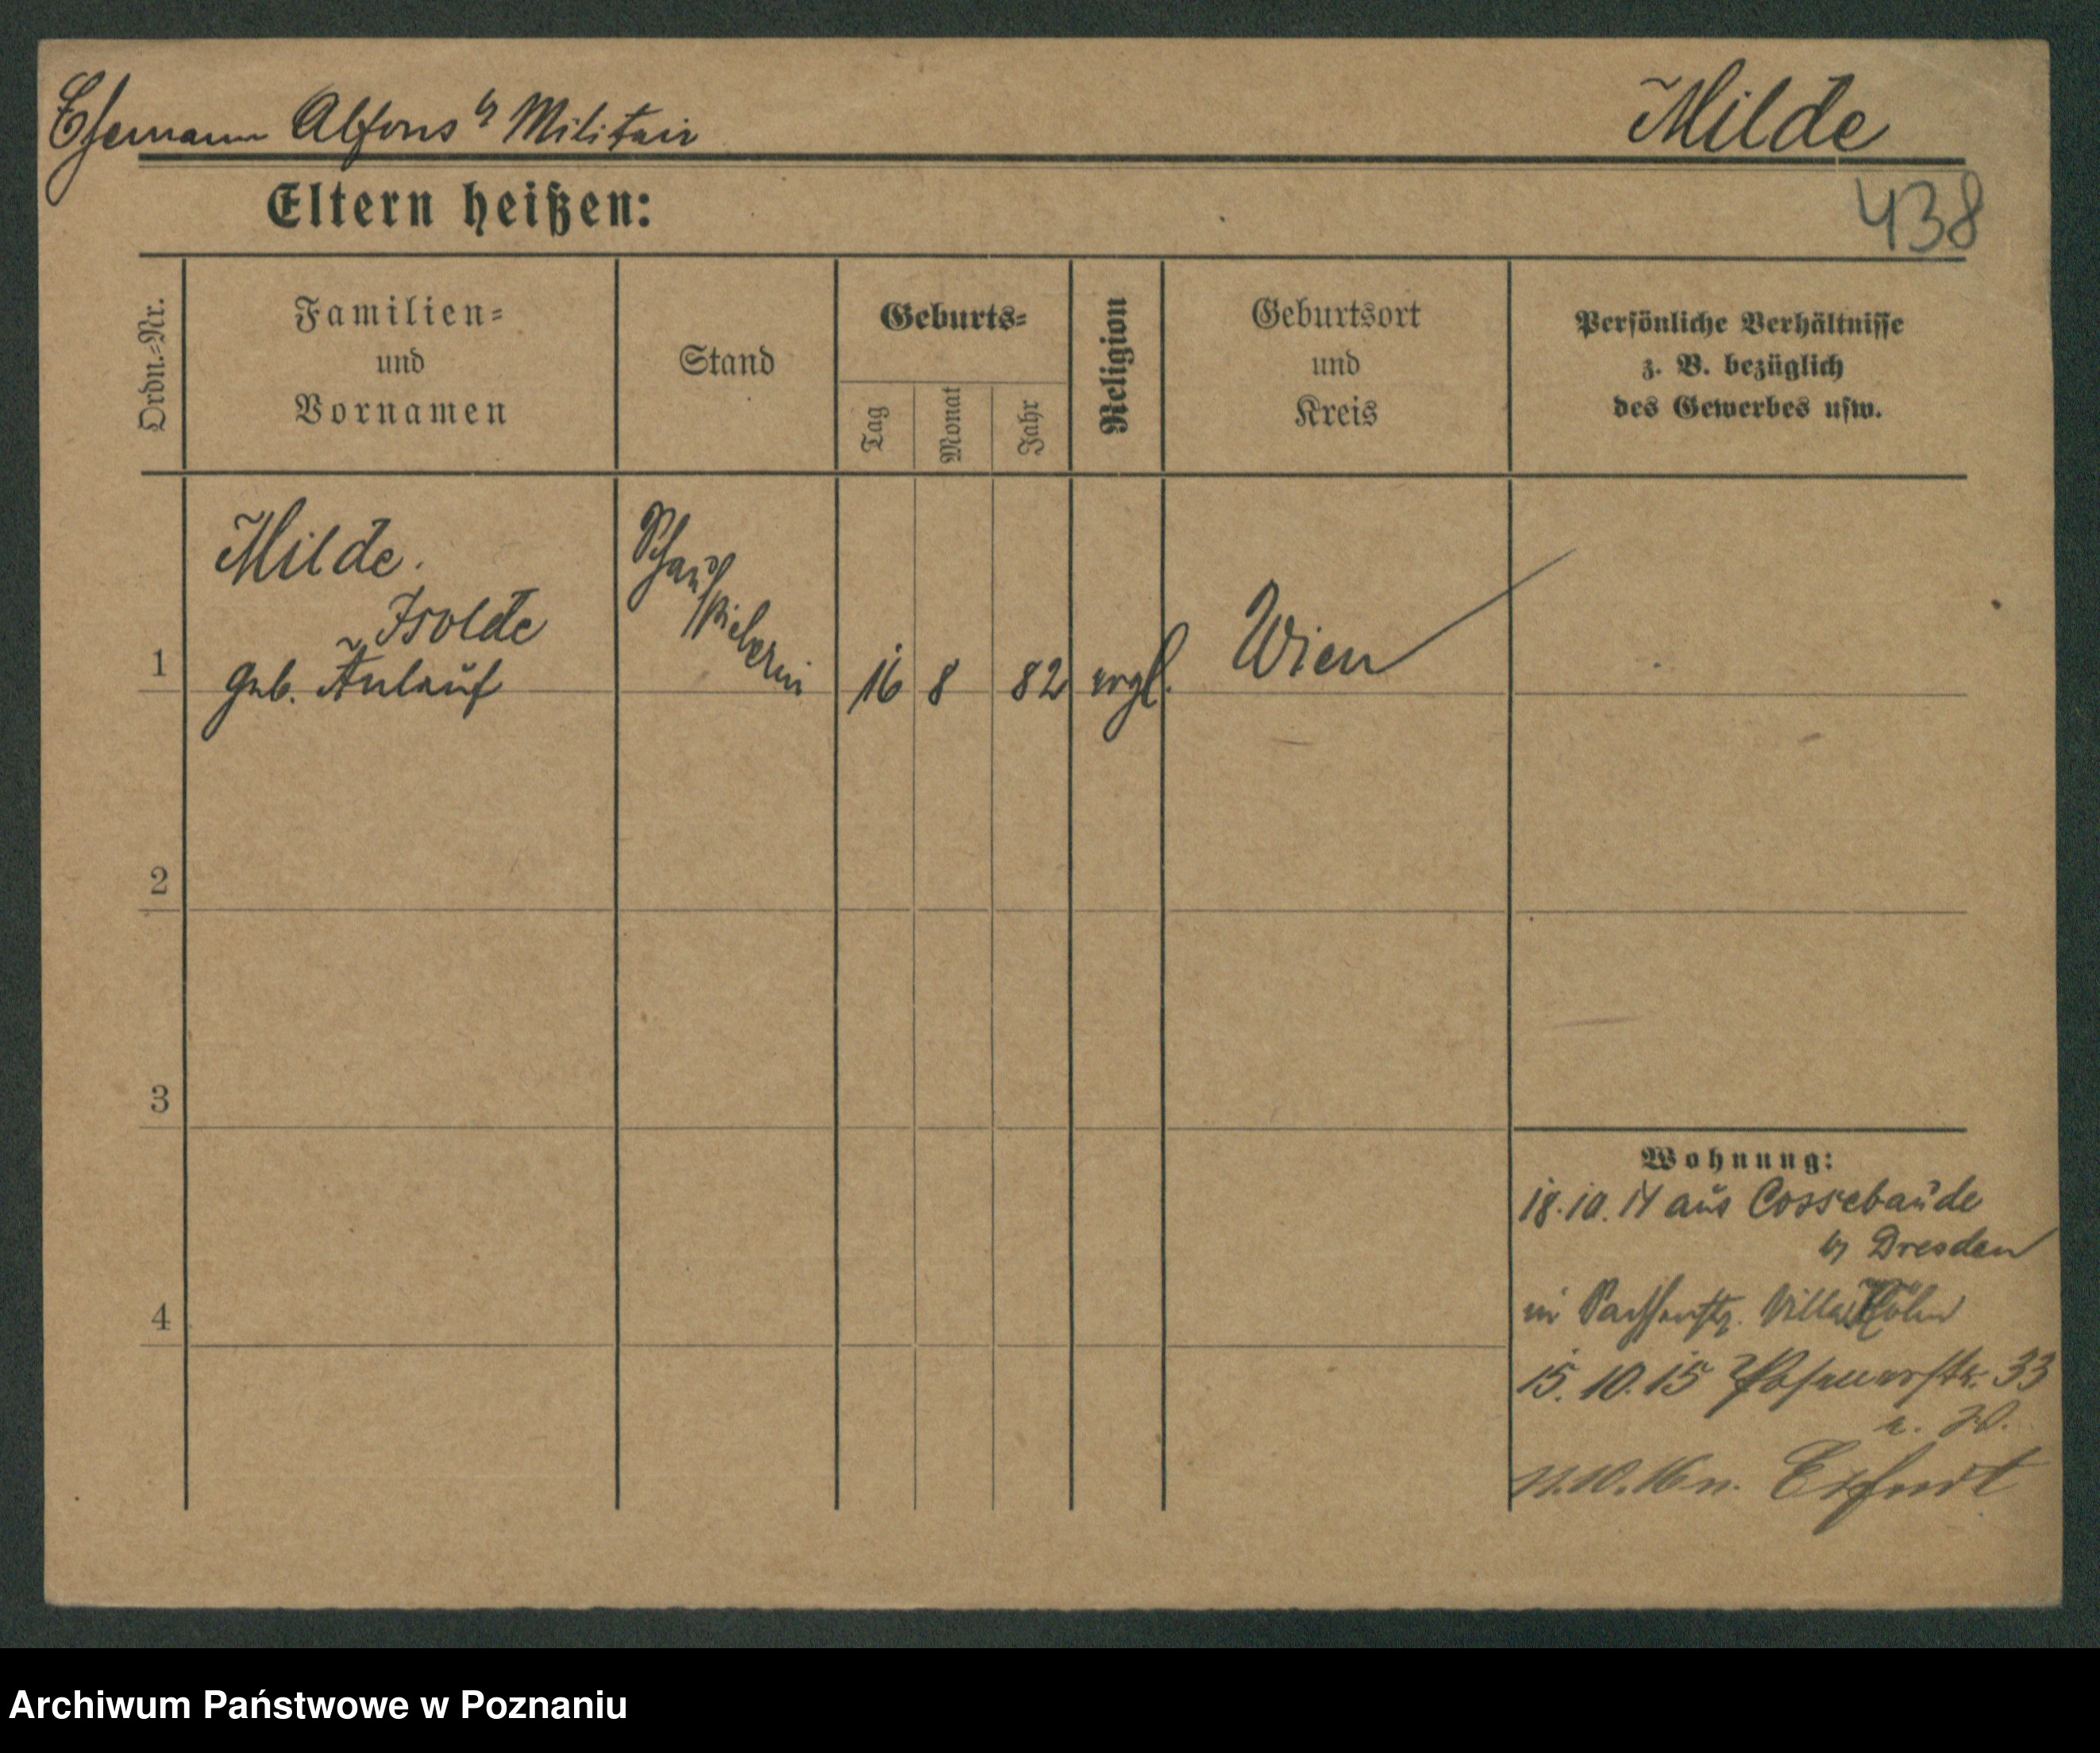 Ehemann Alfons b/ Militair
Milde
438
Eltern heißen:
Ordn.=Nr.
Familien=
und
Vornamen
Stand
Geburts=
Tag
Monat
Jahr
Religion
Geburtsort
und
Kreis
Persönliche Verhältnisse
z. B. bezüglich
des Gewerbes usw.
1
Milde.
Isolde
geb. Anlauf
Schau
spielerin
16
8
82
evgl.
Wien
2
3
4
Wohnung:
18.10.14 aus Cossebaude
b/ Dresden
in Villa
15.10.15 Posenerstr. 33
11.10.16 n. Erfurt
Archiwum Państwowe w Poznaniu